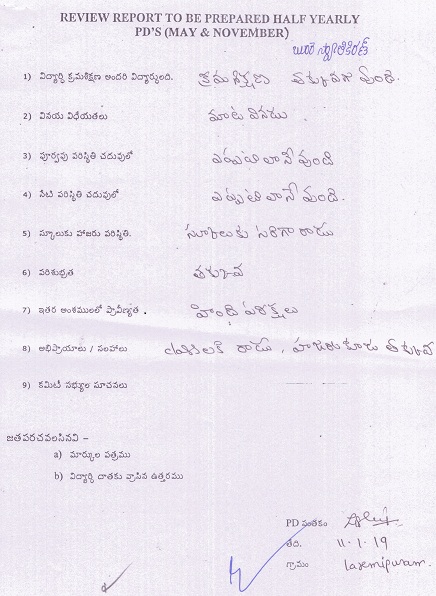 REVIEW REPORT TO BE PREPARED HALF YEARLY
PD'S (MAY & NOVEMBER)
1) విద్యార్థి క్రమశిక్షణ అందరి విద్యార్థులది. క్రమశిక్షణ తక్కువగా వుంది.
2) వినయ విధేయతలు మాట వినడు
3) పూర్వపు పరిస్థితి చదువులో ఎప్పటిలానే వుంది
4) నేటి పరిస్థితి చదువులో ఎప్పటిలానే వుంది.
5) స్కూలుకు హాజరు పరిస్థితి. స్కూలుకు సరిగా రాడు
6) పరిశుభ్రత తక్కువ
7) ఇతర అంశములలో ప్రావీణ్యత . హింది పరీక్షలు
8) అభిప్రాయాలు / సలహాలు classలకి రాడు, హాజరుకూడు తక్కువ
9) కమిటీ సభ్యుల సూచనలు
జతపరచవలసినవి –
a) మార్కుల పత్రము
b) విద్యార్థి దాతకు వ్రాసిన ఉత్తరము
PD సంతకం
తేది. 11-1-19
గ్రామం laxmipuram.